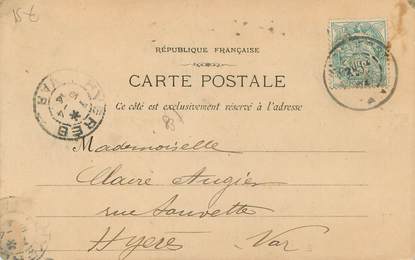 15 €
RÉPUBLIQUE FRANÇAISE
CARTE POSTALE
Ce côté est exclusivement réservé à l'adresse
HYÈRES
VAR
Mademoiselle
Claire Augier
rue Sauvette
Hyères Var